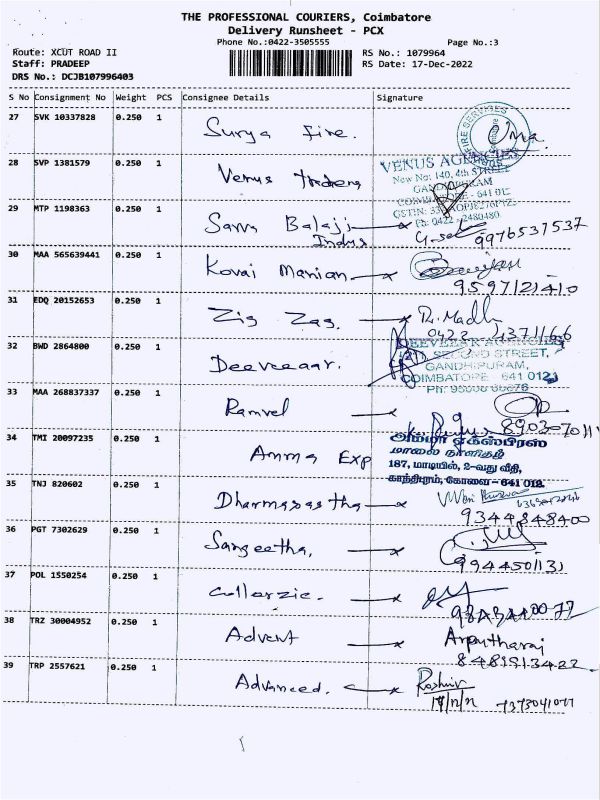 THE PROFESSIONAL COURIERS, Coimbatore
Delivery Runsheet - PCX
Phone No.:0422-3505555 Page No.:3
Route: XCUT ROAD II RS No.: 1079964
Staff: PRADEEP RS Date: 17-Dec-2022
DRS No.: DCJB107996403
S No Consignment No Weight PCS Consignee Details Signature
27 SVK 10337828 0.250 1 Surya Fire. FIRE SERVICES Uma.
28 SVP 1381579 0.250 1 Venus
VENUS AGENCIES
New No: 140, 4th STREET
GANDHIPURAM
COIMBATORE - 641 012.
Ph: 0422 - 2480480
29 MTP 1198363 0.250 1 Balaji
Indus 9976537537
30 MAA 565639441 0.250 1 Kovai Manian
9597121410
31 EDQ 20152653 0.250 1 Zig Zag. Madh
0422
32 BWD 2864800 0.250 1 Deeveeaar.
DEEVEEAR AGENCIES
SECOND STREET,
GANDHIPURAM,
COIMBATORE - 641 012
33 MAA 268837337 0.250 1 Ramvel
34 TMI 20097235 0.250 1 Amma Exp
அம்மா எக்ஸ்பிரஸ்
மாலை நாளிதழ்
187, மாடியில், 2-வது வீதி,
காந்திபுரம், கோவை - 641 012.
35 TNJ 820602 0.250 1 Dharmasastha
9344848400
36 PGT 7302629 0.250 1 Sangeetha.
9944501131
37 POL 1550254 0.250 1
38 TRZ 30004952 0.250 1 Advent Arputharaj
8481513422
39 TRP 2557621 0.250 1 Advanced. Roshini
7373041077